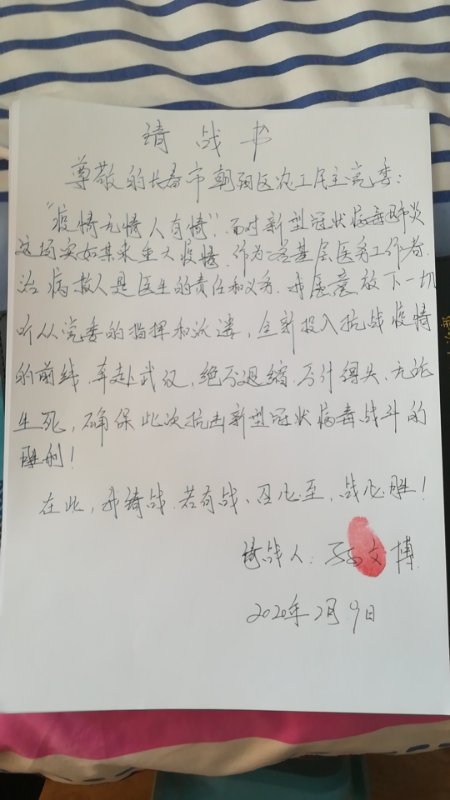 请战书
尊敬的长春市朝阳区农工民主党委：
"疫情无情人有情"。面对新型冠状病毒肺炎
这场突如其来重大疫情，作为一名基层医务工作者，
治病救人是医生的责任和义务，我愿意放下一切
听从党委的指挥和派遣，全新投入抗战疫情
的前线，奔赴武汉，绝不退缩，不计得失，无论
生死，确保此次抗击新型冠状病毒战斗的
胜利！
在此，我请战，若有战，召必至，战必胜！
请战人：文博
2020年2月9日